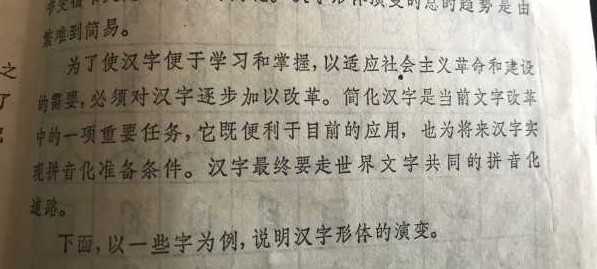 形体演变的总的趋势是由
繁难到简易。
为了使汉字便于学习和掌握,以适应社会主义革命和建设
的需要,必须对汉字逐步加以改革。简化汉字是当前文字改革
中的一项重要任务,它既便利于目前的应用,也为将来汉字实
现拼音化准备条件。汉字最终要走世界文字共同的拼音化
道路。
下面,以一些字为例,说明汉字形体的演变。
之
了